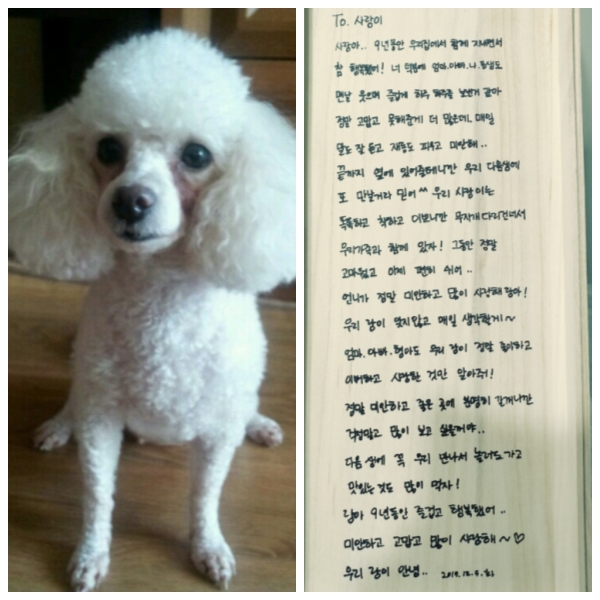 To. 사랑이
사랑아.. 9년동안 우리집에서 함께 지내면서
참 행복했어! 너 덕분에 엄마.아빠.나.동생도
맨날 웃으며 즐겁게 하루 하루를 보낸거 같아
정말 고맙고 못해준게 더 많은데, 매일
말도 잘 듣고 재롱도 피우고 미안해..
끝까지 옆에 있어줄테니깐 우리 다음생에
또 만날거라 믿어^^ 우리 사랑이는
똑똑하고 착하고 이쁘니깐 무지개다리건너서
우리가족과 함께 있자! 그동안 정말
고마웠고 이제 편히 쉬어..
언니가 정말 미안하고 많이 사랑해 랑아!
우리 랑이 잊지않고 매일 생각할게~
엄마.아빠.형아도 우리 랑이 정말 좋아하고
이뻐하고 사랑한 것만 알아줘!
정말 미안하고 좋은 곳에 분명히 갈거니깐
걱정말고 많이 보고 싶을꺼야..
다음 생에 꼭 우리 만나서 놀러도 가고
맛있는것도 많이 먹자!
랑아 9년동안 즐겁고 행복했어..
미안하고 고맙고 많이 사랑해~♡
우리 랑이 안녕..